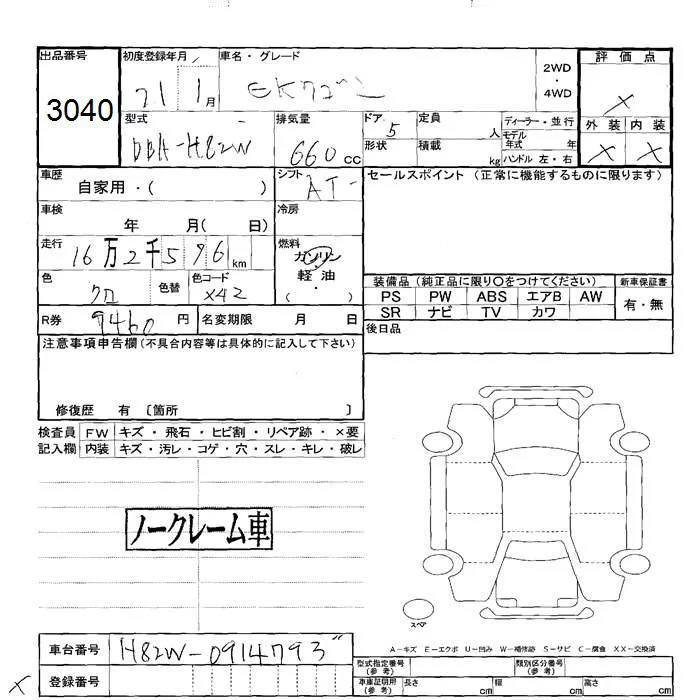 出品番号 初度登録年月 車名・グレード 2WD・4WD 評価点
3040 21 1月 EKワゴン ×
型式 排気量 ドア 定員 ディーラー・並行 外装 内装
DBA-H82W 660cc 5 人 モデル年式 年 × ×
形状 積載 kg ハンドル 左・右
車歴 自家用・( ) シフト AT セールスポイント(正常に機能するものに限ります)
車検 年 月( 日) 冷房
走行 16万2千596km 燃料 ガソリン
軽油
( )
色 クロ 色替 色コード X42 装備品(純正品に限り○をつけてください) 新車保証書
PS PW ABS エアB AW 有・無
R券 9460円 名変期限 月 日 SR ナビ TV カワ
後日品
注意事項申告欄(不具合内容等は具体的に記入して下さい)
修復歴 有 〔箇所 〕
検査員 FW キズ・飛石・ヒビ割・リペア跡・×要
記入欄 内装 キズ・汚レ・コゲ・穴・スレ・キレ・破レ
ノークレーム車
スペア
A-キズ E-エクボ U-凹み W-補修跡 S-サビ C-腐食 XX-交換済
車台番号 H82W-0914793
型式指定番号(参考) 類別区分番号(参考)
× 登録番号 車車証明用(参考) 長さ cm 幅 cm 高さ cm